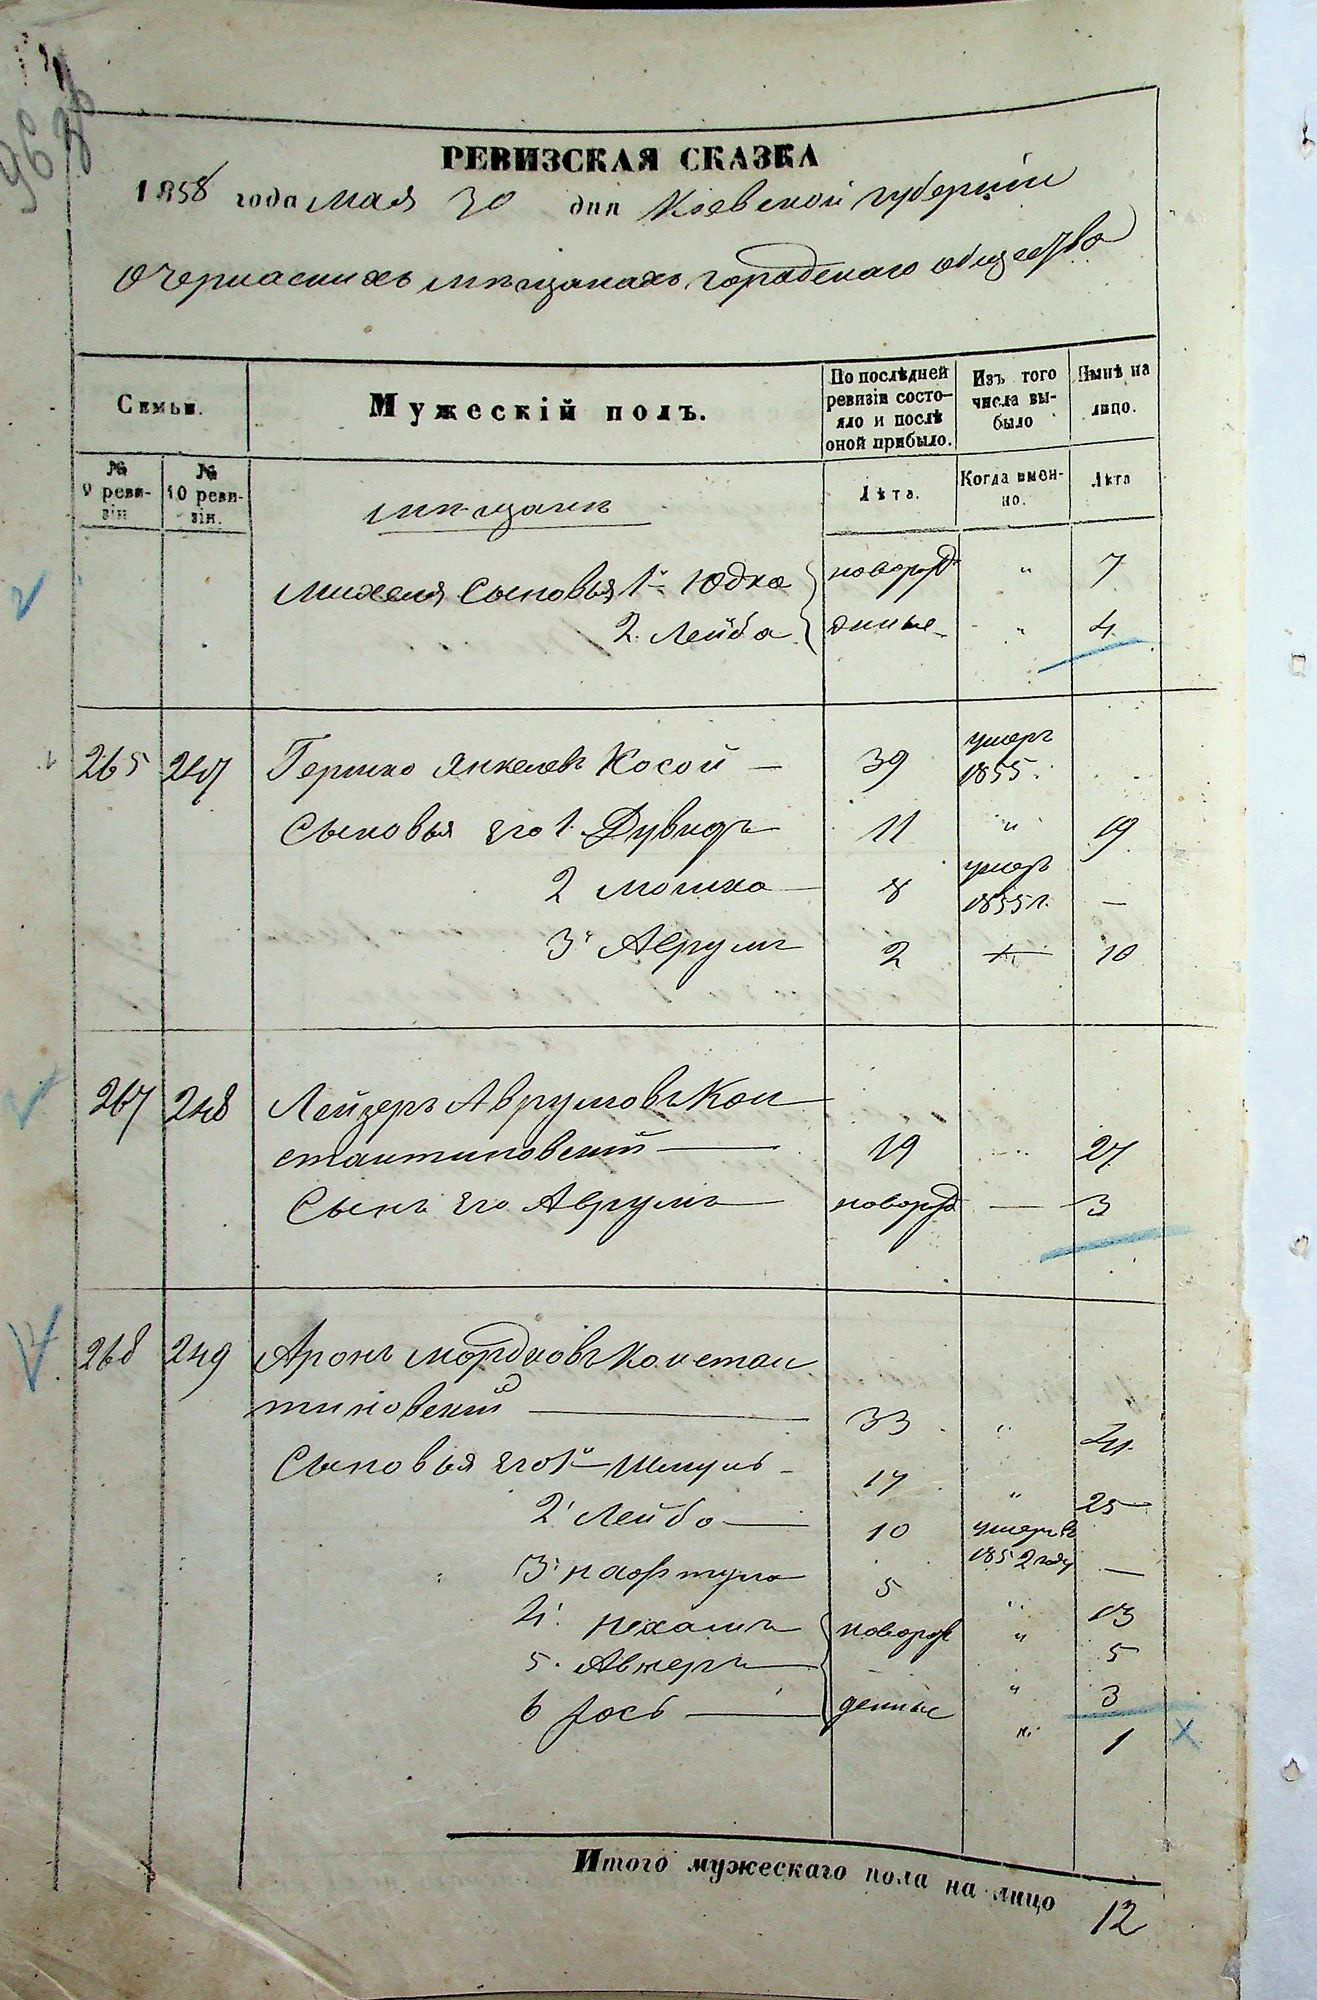 РЕВИЗСКАЯ СКАЗКА
1858 года мая 30 дня Кіевской губерніи
О Черкаскихъ мѣщанахъ городскаго общества
Семьи.
Мужескій полъ.
По послѣдней ревизіи состо-
яло и послѣ
оной прибыло.
Изъ того
числа вы-
было
Нынѣ на
лицо.
№
9 реви-
зіи
№
10 реви-
зіи.
мѣщане
Лѣта.
Когда имен-
но.
Лѣта
Михеля Сыновья 1й Юдко новорож " 7
2. Лейба денные " 4
265 247 Гершко Янкелевъ Косой — 39 умеръ
1855.
Сыновья его 1. Дувидъ 11 " 19
2 Мошко — 8 умеръ
1855 г. —
3й Аврумъ 2 — 10
267 248 Лейзеръ Аврумовъ Кон
стантиновскій — 19 " 27
Сынъ его Аврумъ новорож — 3
268 249 Аронъ Мордковъ Констан
тиновскій — 33 " 41
Сыновья его 1й Шмуль 17 " 25
2й Лейба — 10 умеръ въ
1852 году —
3й Нафтула 5 " 13
4й Нехамъ новорож " 5
5. — " 3
6 Іось — денные " 1
Итого мужескаго пола на лицо 12